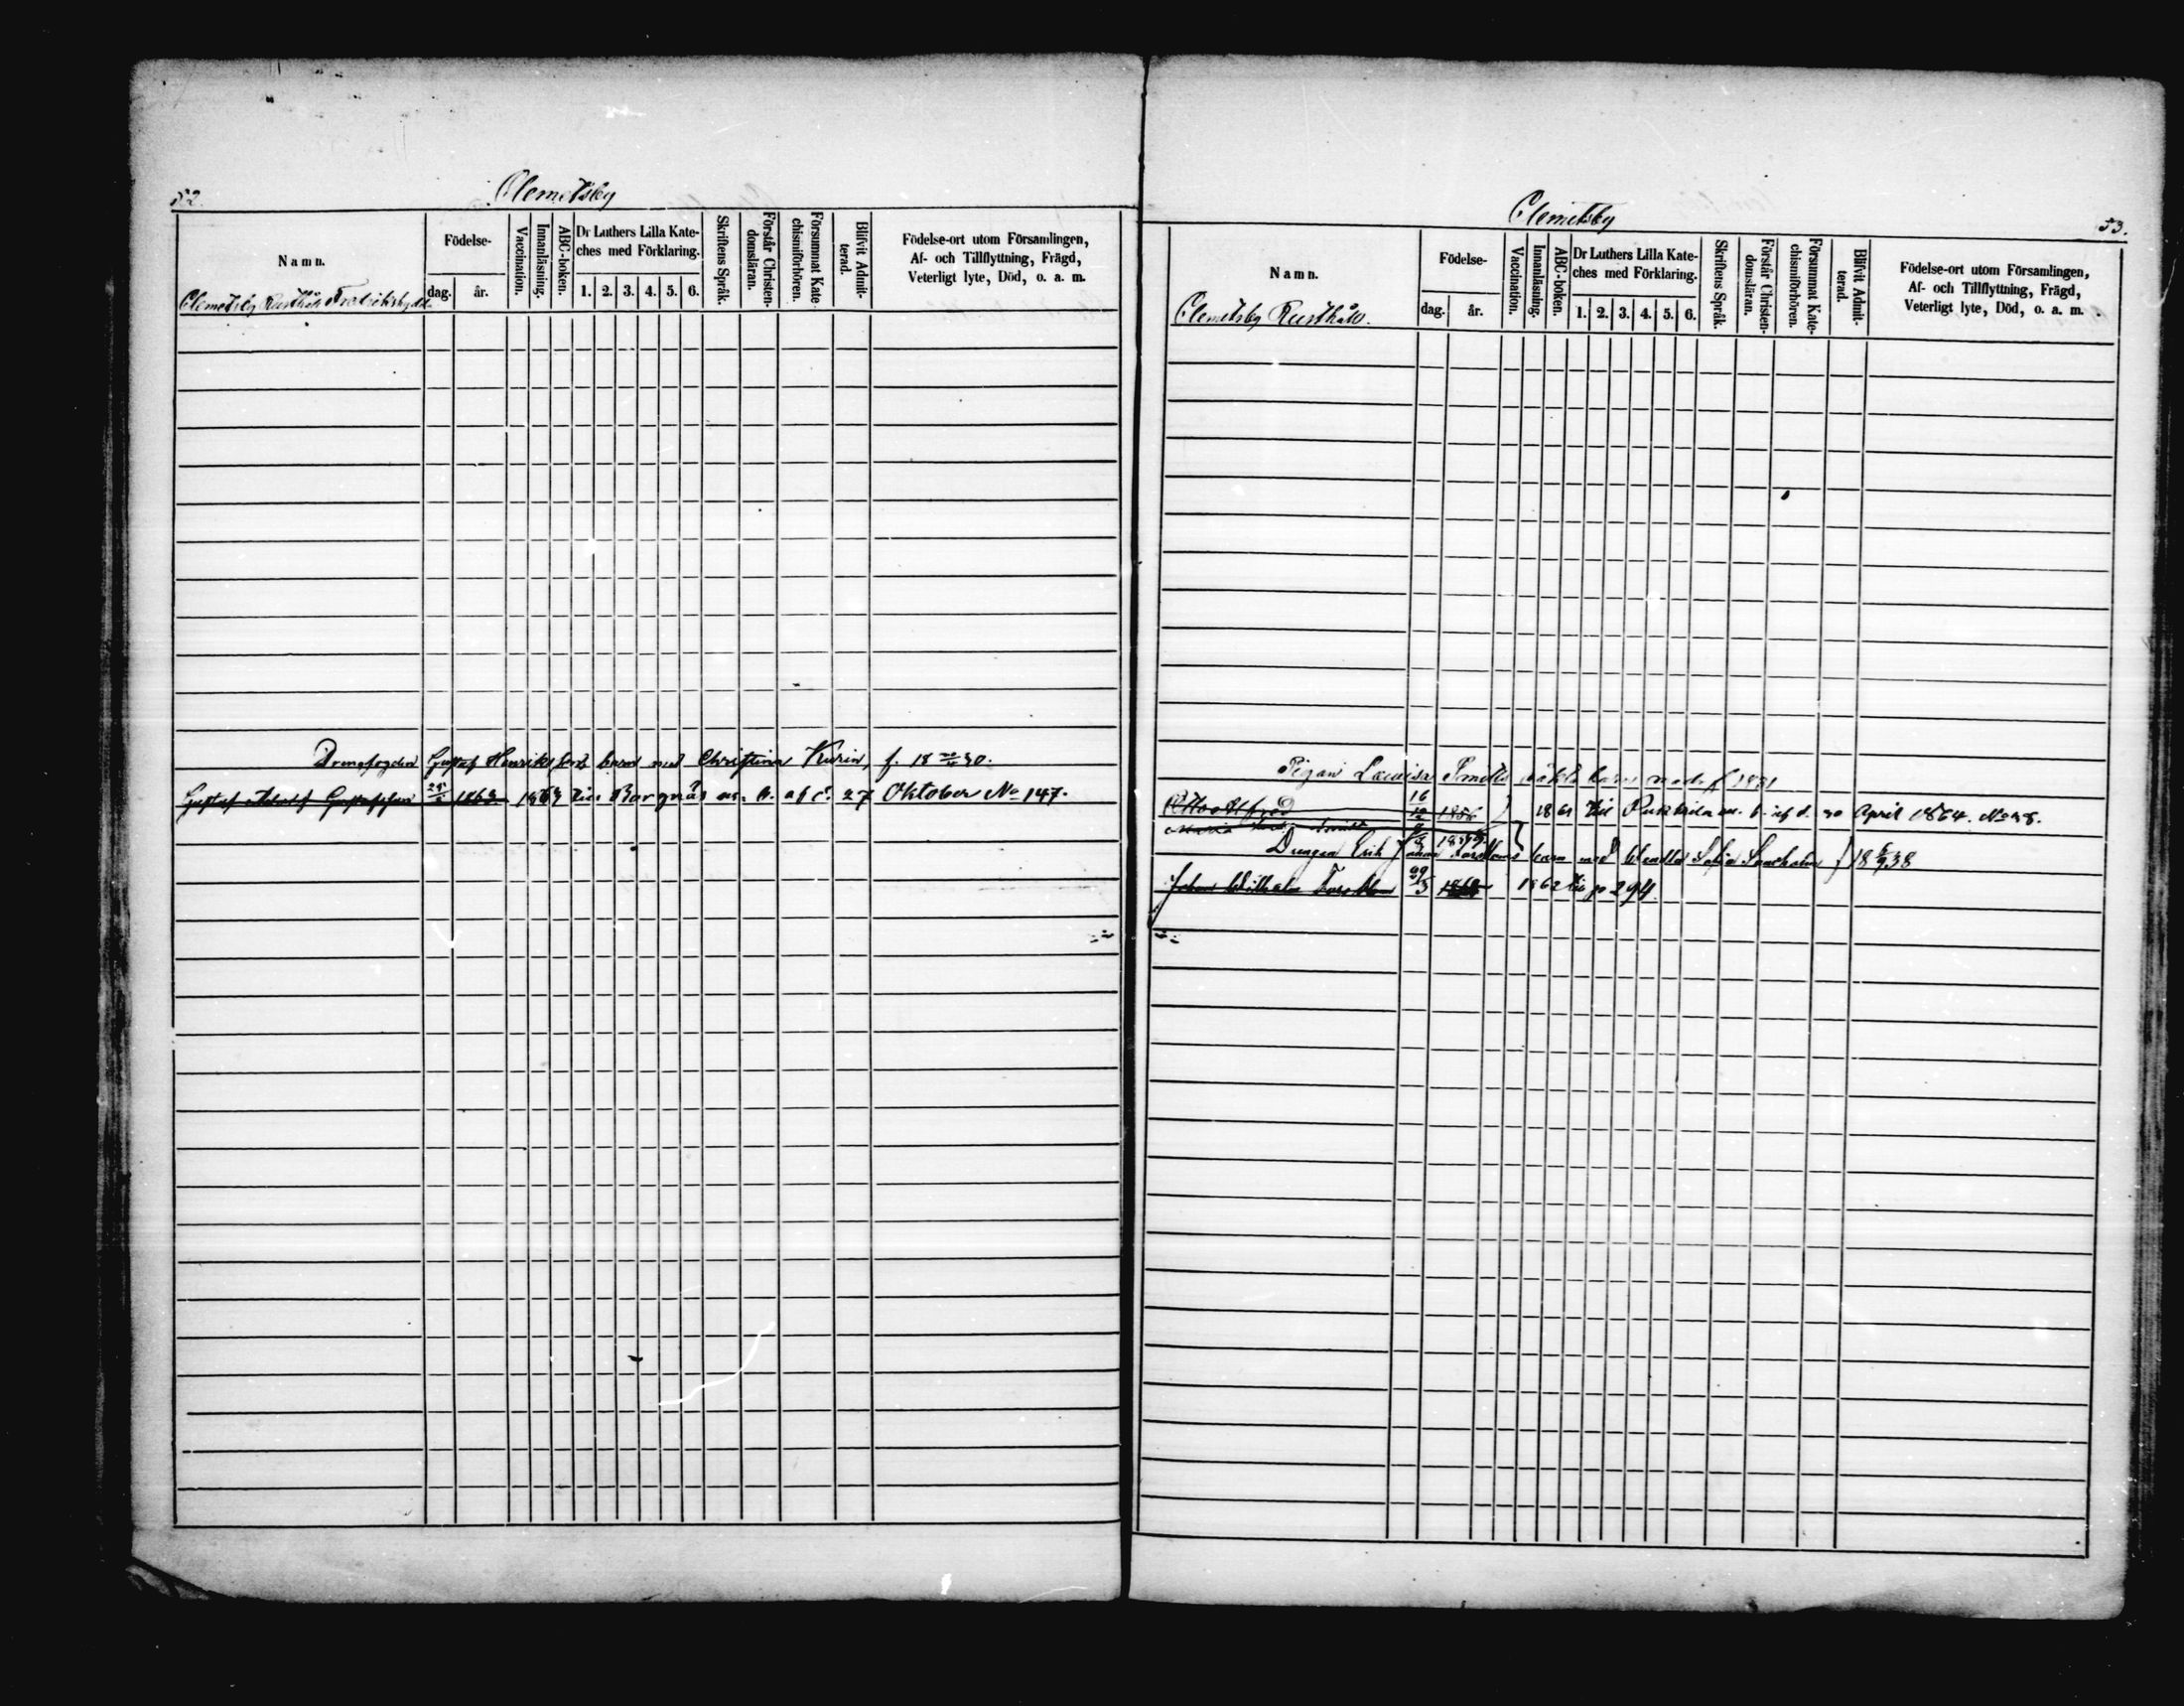 52.
Clemetsby
Namn.
Födelse-
dag.
år.
Vaccination.
Innanläsning.
ABC-boken.
Dr Luthers Lilla Kate-
ches med Förklaring.
1. 2. 3. 4. 5. 6.
Skriftens Språk.
Förstår Christen-
domsläran.
Försummat Kate-
chismiförhören.
Blifvit Admit-
terad.
Födelse-ort utom Församlingen,
Af- och Tillflyttning, Frägd,
Veterligt lyte, Död, o. a. m.
Clemetsby Rusthåll
Gustaf Henriks barn med Christina f. 18 30.
Gustaf Adolf Gustafsson 1863 1863 till Borgnäs m. b. af d. 27 Oktober No 147.
Clemetsby
53.
Namn.
Födelse-
dag.
år.
Vaccination.
Innanläsning.
ABC-boken.
Dr Luthers Lilla Kate-
ches med Förklaring.
1. 2. 3. 4. 5. 6.
Skriftens Språk.
Förstår Christen-
domsläran.
Försummat Kate-
chismiförhören.
Blifvit Admit-
terad.
Födelse-ort utom Församlingen,
Af- och Tillflyttning, Frägd,
Veterligt lyte, Död, o. a. m.
Clemetsby Rusthåll.
Pigan Lovisa barn 1831
16
1856 till m. b. af d. 30 April 1864.
Maria
Drengen Erik barn med Sofia 18 38
Johan Wilhelm 1862 till p 294.